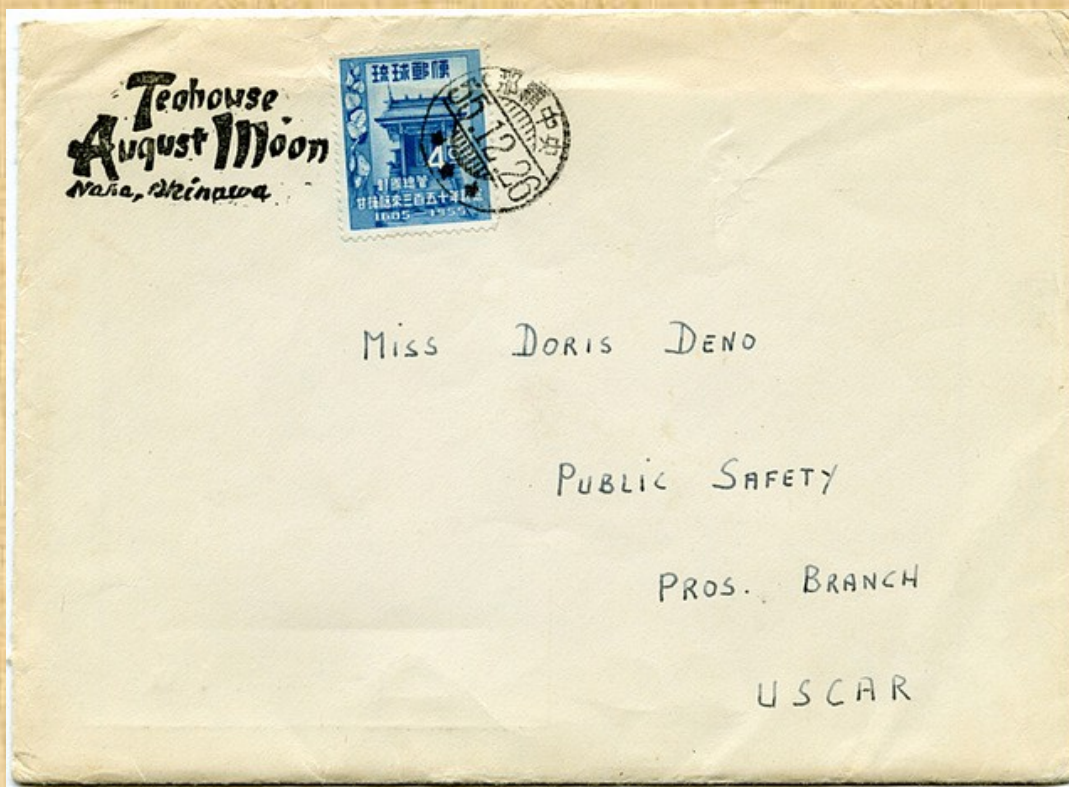 Teahouse
August Moon
Naha, Okinawa
琉球郵便
4
三百五十年
1605-1955
那覇中央
55.12.26
Miss Doris Deno
Public Safety
Pros. Branch
USCAR